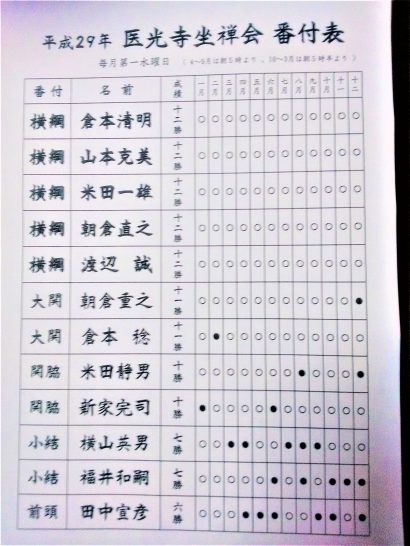 平成29年 医光寺坐禅会 番付表
毎月第一水曜日 (4~9月は朝5時より、10~3月は朝5時半より)
番付 名前 成績 一月 二月 三月 四月 五月 六月 七月 八月 九月 十月 十一 十二
横綱 倉本清明 十二勝 ○ ○ ○ ○ ○ ○ ○ ○ ○ ○ ○ ○
横綱 山本克美 十二勝 ○ ○ ○ ○ ○ ○ ○ ○ ○ ○ ○ ○
横綱 米田一雄 十二勝 ○ ○ ○ ○ ○ ○ ○ ○ ○ ○ ○ ○
横綱 朝倉直之 十二勝 ○ ○ ○ ○ ○ ○ ○ ○ ○ ○ ○ ○
横綱 渡辺 誠 十二勝 ○ ○ ○ ○ ○ ○ ○ ○ ○ ○ ○ ○
大関 朝倉重之 十一勝 ○ ○ ○ ○ ○ ○ ○ ○ ○ ○ ○ ●
大関 倉本 稔 十一勝 ○ ● ○ ○ ○ ○ ○ ○ ○ ○ ○ ○
関脇 米田靜男 十勝 ○ ○ ○ ○ ○ ○ ○ ● ○ ○ ○ ●
関脇 新家完司 十勝 ● ○ ○ ○ ○ ● ○ ○ ○ ○ ○ ○
小結 横山英男 七勝 ○ ○ ● ● ○ ○ ● ● ● ○ ○ ○
小結 福井和嗣 七勝 ○ ○ ○ ○ ○ ● ○ ● ○ ● ● ●
前頭 田中宣彦 六勝 ○ ○ ○ ● ● ● ○ ○ ● ● ○ ●